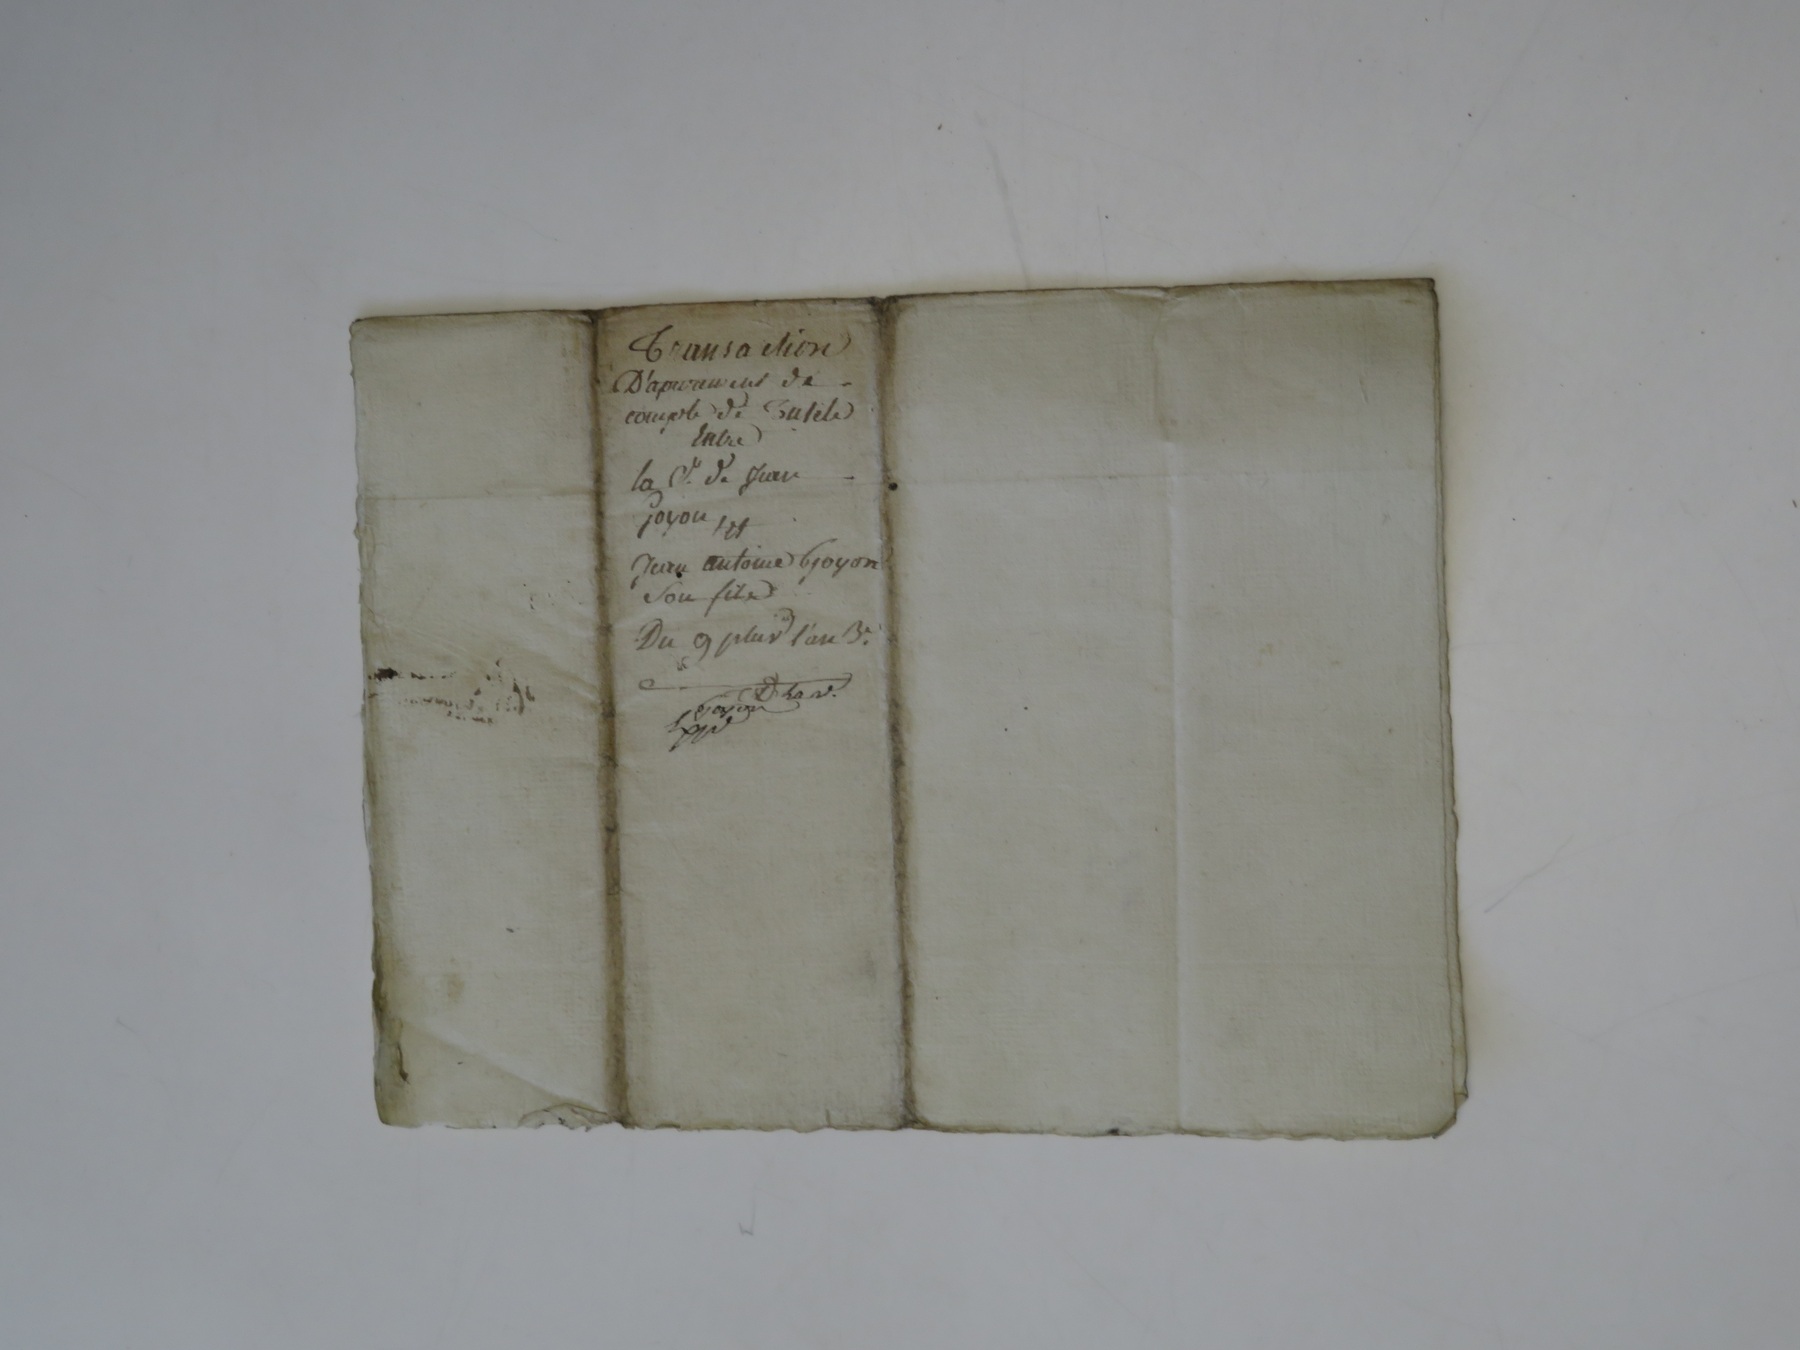 Transaction
D'apurement de
compte de Tutele
Entre
la de Jean
Goyon Et
Jean antoine Goyon
Son fils
Du 9 pluv l'an 3e.
Goyon
Exp